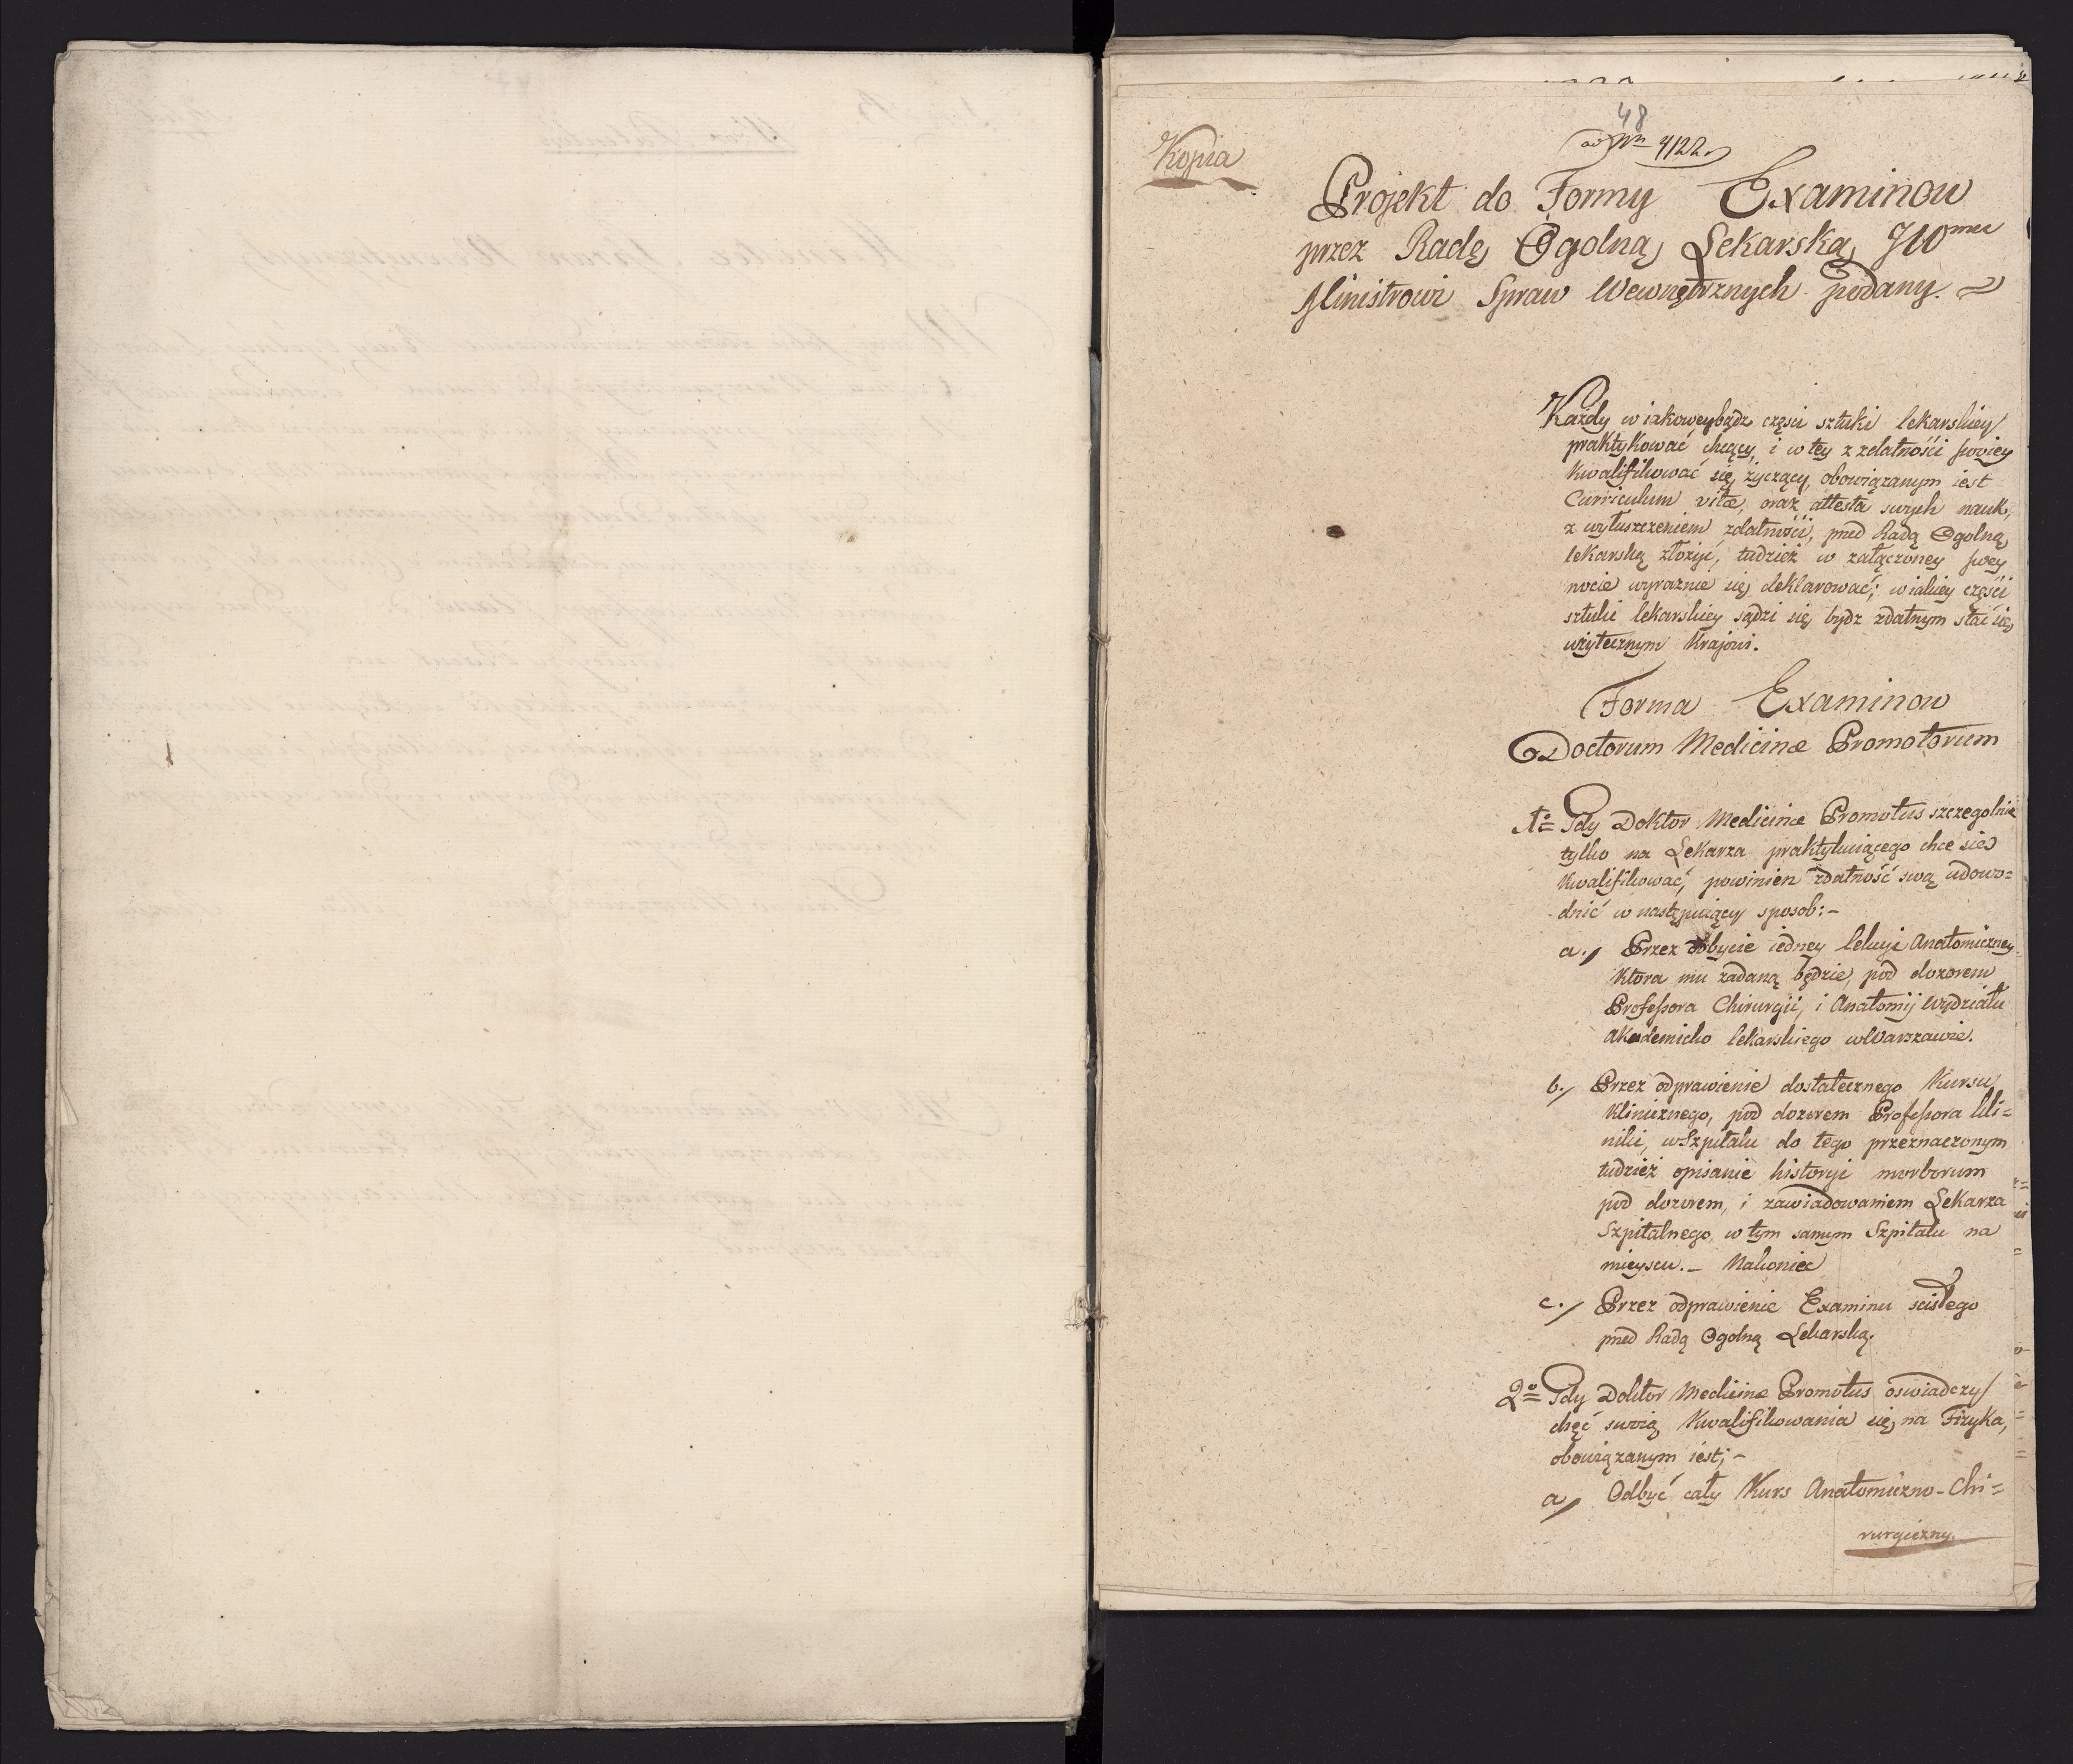 48
Kopia
ad Nrm 4122.
Projekt do Formy Examinow
przez Radę Ogolną Lekarską JW
Ministrowi Spraw Wewnętrznych podany.
Każdy w iakoweybądz częsci sztuki lekarskiey
praktykować chcący, i w tey z zdatności swoiey
kwalifikować się życzący, obowiązanym iest
Curriculum vitæ, oraz attesta swych nauk,
z wyłuszczeniem zdatności, przed Radą Ogolną
lekarską złożyć, tudzież w załączoney swey
nocie wyraznie się deklarować; w iakiey części
sztuki lekarskiey sądzi się bydz zdatnym stać się
użytecznym Krajowi.
Forma Examinow
Doctorum Medicinæ Promotorum
1o= Gdy Doktor Medicinæ Promotus szczegolnie
tylko na Lekarza praktykuiącego chce się
kwalifikować, powinien zdatność swą udowo=
dnić w następuiący sposob:-
a./ Przez odbycie iedney lekcyi Anatomiczney
ktora mu zadaną będzie, pod dozorem
Professora Chirurgii, i Anatomij Wydziału
Akademicko lekarskiego w Warszawie.
b./ Przez odprawienie dostatecznego Kursu
Klinicznego, pod dozorem Professora Kli=
niki, w Szpitalu do tego przeznaczonym
tudzież opisanie historyi morborum
pod dozorem, i zawiadowaniem Lekarza
Szpitalnego w tym samym Szpitalu na
mieyscu.- Nakoniec
c./ Przez odprawienie Examinu scisłego
przed Radą Ogolną Lekarską.
2o= Gdy Doktor Medicinæ Promotus oswiadczy
chęć swoią Kwalifikowania się na Fizyka,
obowiązanym iest;-
a/ Odbyć cały Kurs Anatomiczno-Chi=
rurgiczny.